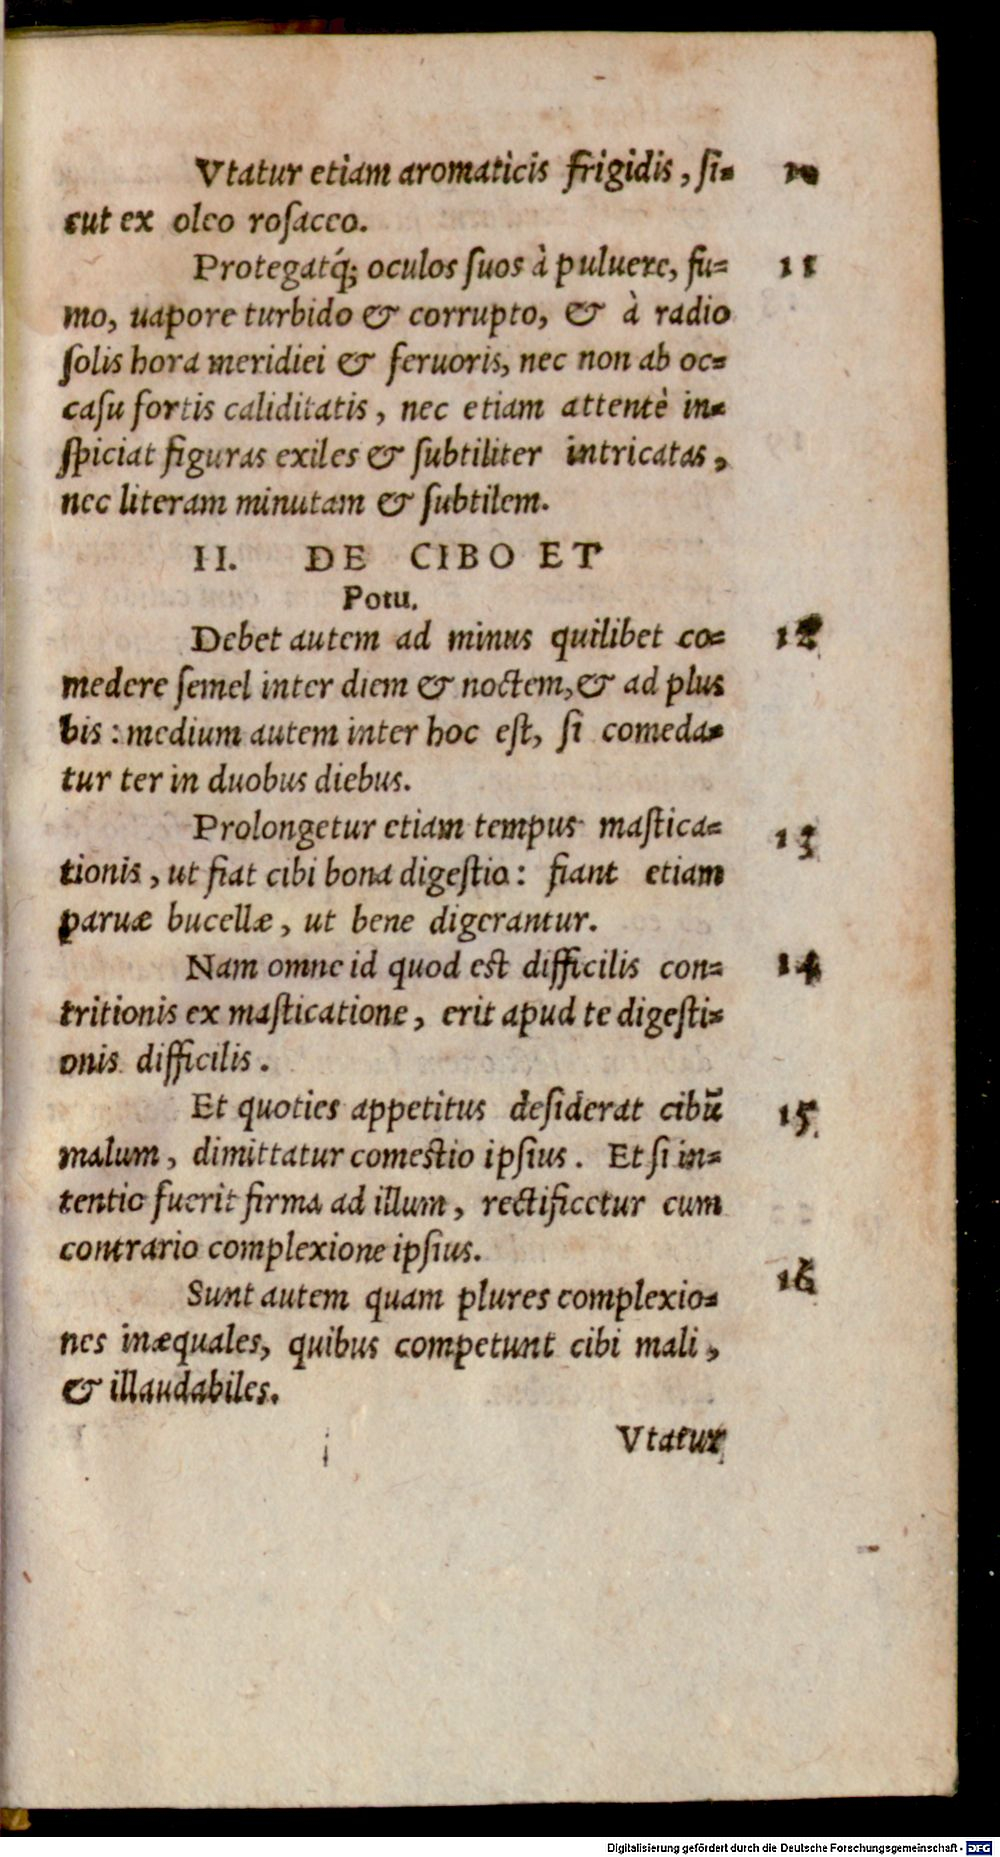 Vtatur etiam aromaticis frigidis, ſi= 10
cut ex oleo roſaceo.
Protegatq́; oculos ſuos à puluere, fu= 11
mo, uapore turbido & corrupto, & à radio
ſolis hora meridiei & feruoris, nec non ab oc=
caſu fortis caliditatis, nec etiam attentè in=
ſpiciat figuras exiles & ſubtiliter intricatas,
nec literam minutam & ſubtilem.
II. DE CIBO ET
Potu.
Debet autem ad minus quilibet co= 12
medere ſemel inter diem & noctem, & ad plus
bis: medium autem inter hoc eſt, ſi comeda=
tur ter in duobus diebus.
Prolongetur etiam tempus maſtica= 13
tionis, ut fiat cibi bona digeſtio: fiant etiam
paruæ bucellæ, ut bene digerantur.
Nam omne id quod est difficilis con= 14
tritionis ex maſticatione, erit apud te digeſti=
onis difficilis.
Et quoties appetitus deſiderat cibũ 15
malum, dimittatur comestio ipſius. Et ſi in=
tentio fuerit firma ad illum, rectificetur cum
contrario complexione ipſius.
Sunt autem quam plures complexio= 16
nes inæquales, quibus competunt cibi mali,
& illaudabiles.
Vtatur
Digitalisierung gefördert durch die Deutsche Forschungsgemeinschaft - DFG